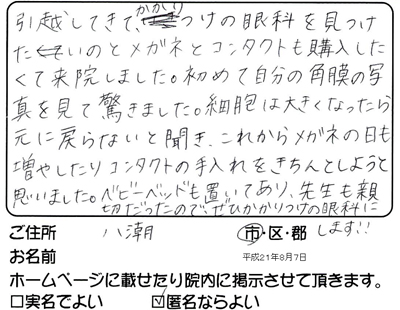 引越してきて、かかりつけの眼科を見つけ
たいのとメガネとコンタクトも購入した
くて来院しました。初めて自分の角膜の写
真を見て驚きました。細胞は大きくなったら
元に戻らないと聞き、これからメガネの日も
増やしたりコンタクトの手入れをきちんとしようと
思いました。ベビーベッドも置いてあり、先生も親
切だったので、ぜひかかりつけの眼科に
します!!
ご住所 八潮 市・区・郡
お名前 平成21年8月7日
ホームページに載せたり院内に掲示させて頂きます。
□実名でよい ☑匿名ならよい